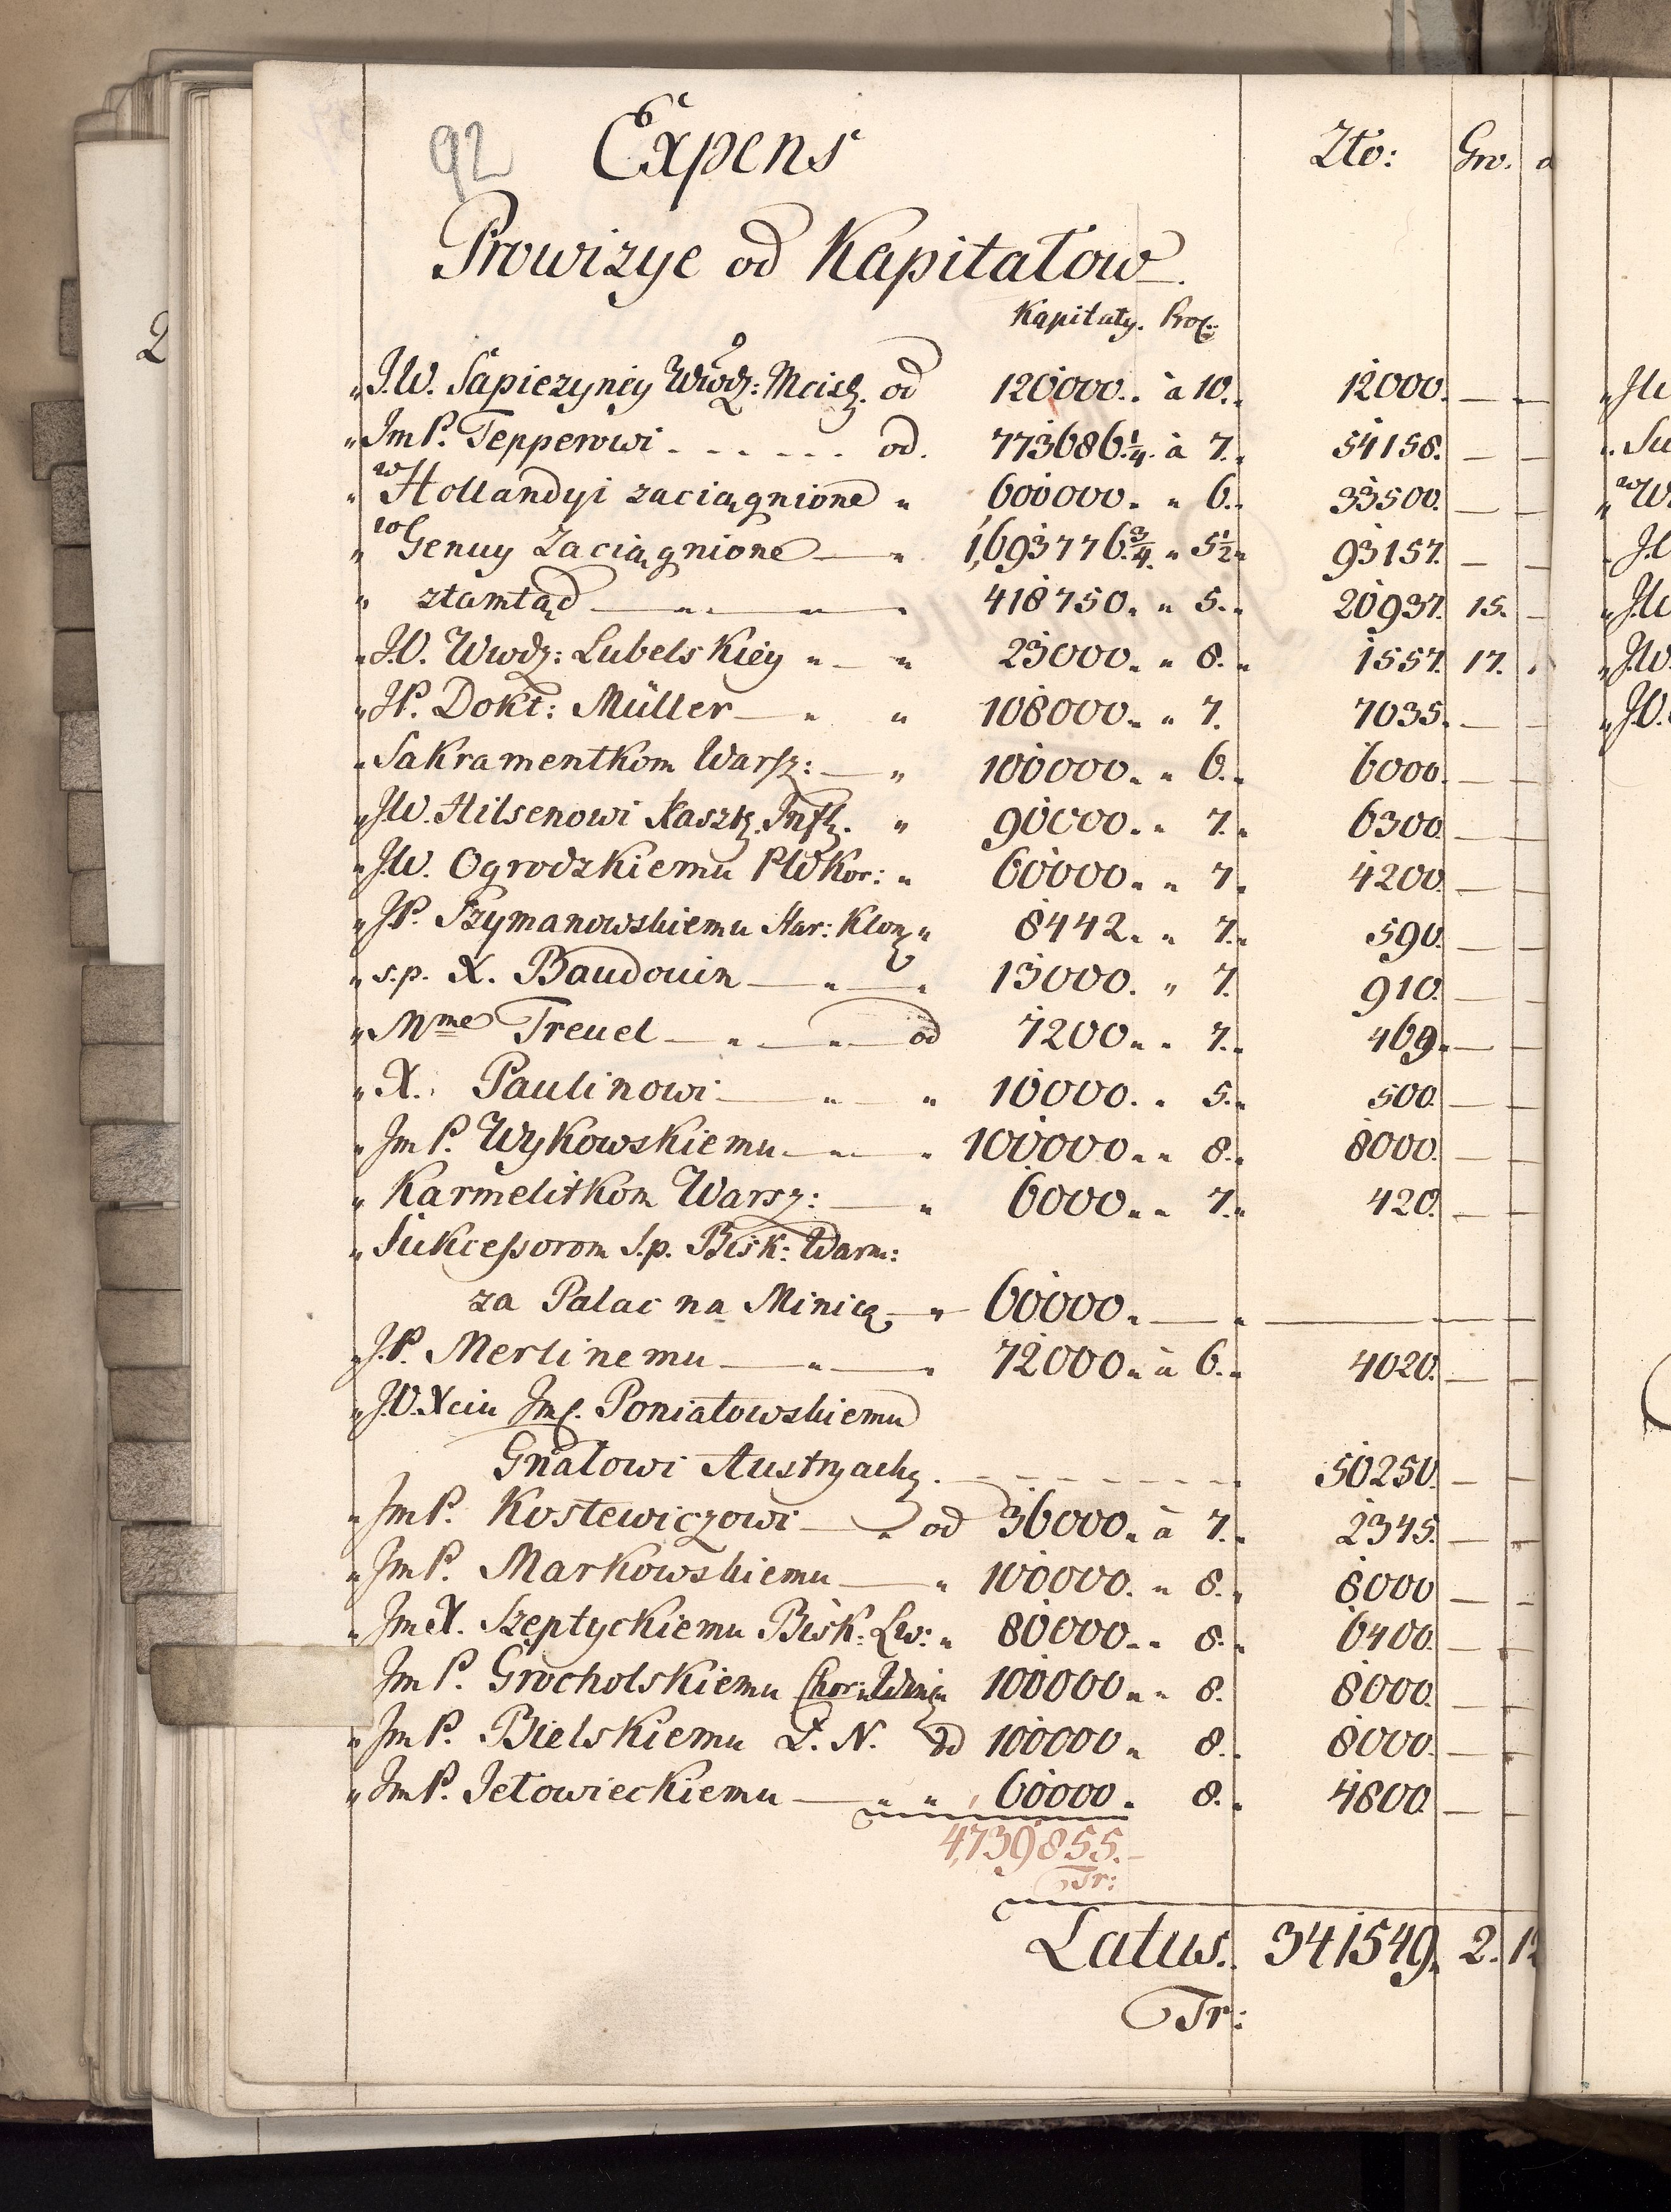 92 Expens Zło: Gro. d
Prowizye od Kapitałow.
Kapitały. Proc:
„ J.W. Sapiezyney Wwdz: Mcisł. od 120000. . à 10. „ 12000. — —
„ Jm P. Tepperowi . . . . . . od. 773686 1/4. à 7. „ 54158. — —
„ w Hollandyi zaciągnione „ 600000. „ 6. „ 33500. — —
„ w Genuy Zaciągnione — „ 1,693776. 3/4. „ 5 1/2 „ 93157. — —
„ ztamtąd — „ — „ — „ 418750. „ 5. „ 20937. 15. —
„ J.W. Wwdz: Lubelskiey „ — „ 23000. „ 8. „ 1557. 17.
„ JP. Dokt: Müller — „ „ 108000. „ 7. 7035. — —
„ Sakramentkom Warsz: — „ 100000. „ 6. „ 6000. — —
„ JW. Hilsenowi Kasztz. Infl. „ 90000. „ 7. „ 6300. — —
„ J.W. Ogrodzkiemu PWKor: „ 60000. „ 7. „ 4200. — —
„ JP. Szymanowskiemu Star: Klon „ 8442. „ 7. „ 590. — —
„ s.p. X. Baudouin — „ — „ 13000. „ 7. 910. — —
„ Mme Treuel — „ — „ — od 7200. „ 7. „ 469. — —
„ X. Paulinowi — „ — „ 10000. „ 5. „ 500. — —
„ Jm P. Wykowskiemu — „ — „ 100000. „ 8. „ 8000. — —
„ Karmelitkom Warsz: — „ 6000. „ 7. „ 420. — —
„ Sukcessorom S.p. Bisk: Warm:
za Palac na Minicą — „ — 60000. — „ — — —
„ J.P. Merlinemu — „ — „ 72000. à 6. „ 4020. — —
„ J.W. Xciu Jmc. Poniatowskiemu
Gnałowi Austryack. - - - - - - - 50250. — —
„ Jm P. Kostewiczowi — „ od 36000. à 7. „ 2345. — —
„ Jm P. Markowskiemu — „ 100000. „ 8. „ 8000 — —
„ Jm X. Szeptyckiemu Bisk: Lw: „ 80000. „ 8. „ 6400. — —
Jm P. Grocholskiemu Chor: Winn 100000. „ 8. 8000. — —
„ Jm P. Bielskiemu L. N. od 100000 „ 8. „ 8000. — —
„ Jm P. Jełowieckiemu — „ „ 60000. 8. „ 4800. — —
4,739855. —
Tr:
Latus. 341549. 2. 12
Tr: